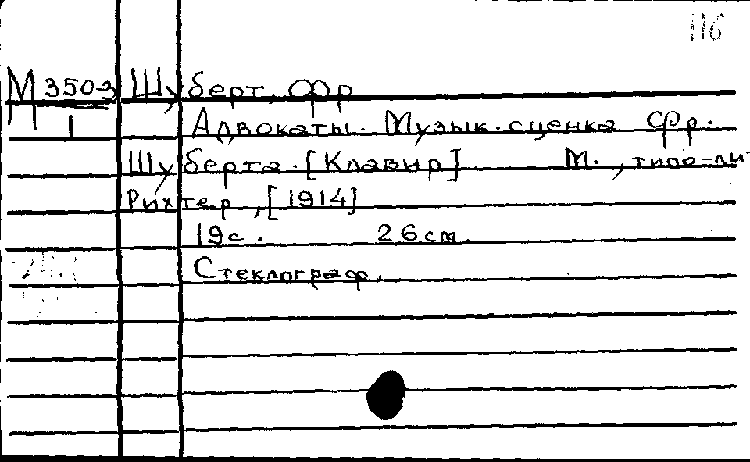 116
М 350-3 Шуберт, Фр
1 Адвокаты. Музык. сценка Фр.
Шуберта. [Клавир] М., типо-лит
Рихтер, [1914]
19с. 26см.
Стеклограф.